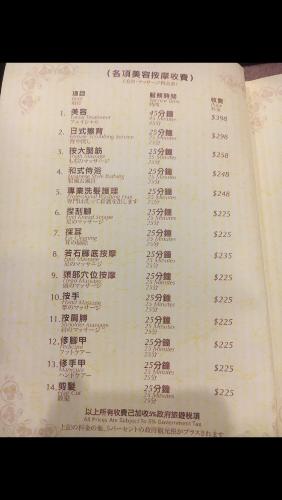 （各項美容按摩收費）
項目
服務時間
收費
1. 美容
45分鐘
45 Minutes
45分
$398
Facial Treatment
フェイシャル
2. 日式擦背
25分鐘
25 Minutes
25分
$298
3. 按大腿筋
25分鐘
25 Minutes
25分
$258
4. 和式侍浴
25分鐘
25 Minutes
25分
$248
5. 專業洗髮護理
25分鐘
25 Minutes
25分
$248
6. 採刮腳
25分鐘
25 Minutes
25分
$225
7. 採耳
25分鐘
25 Minutes
25分
$225
8. 若石腳底按摩
25分鐘
25 Minutes
25分
$235
足のマッサージ
9. 頭部穴位按摩
25分鐘
25 Minutes
25分
$225
Head Massage
頭のマッサージ
10. 按手
25分鐘
25 Minutes
25分
$225
Hand Massage
11. 按肩膊
25分鐘
25 Minutes
25分
$225
Shoulder Massage
肩のマッサージ
12. 修腳甲
25分鐘
25 Minutes
25分
$225
Pedicure
フットケアー
13. 修手甲
25分鐘
25 Minutes
25分
$225
Manicure
ハンドケアー
14. 剪髮
25分鐘
25 Minutes
25分
$225
Hair Cut
以上所有收費已加收5%政府旅遊稅項
All Prices Are Subject To 5% Government Tax
上記の料金の他、5パーセントの政府観光税がプラスされます